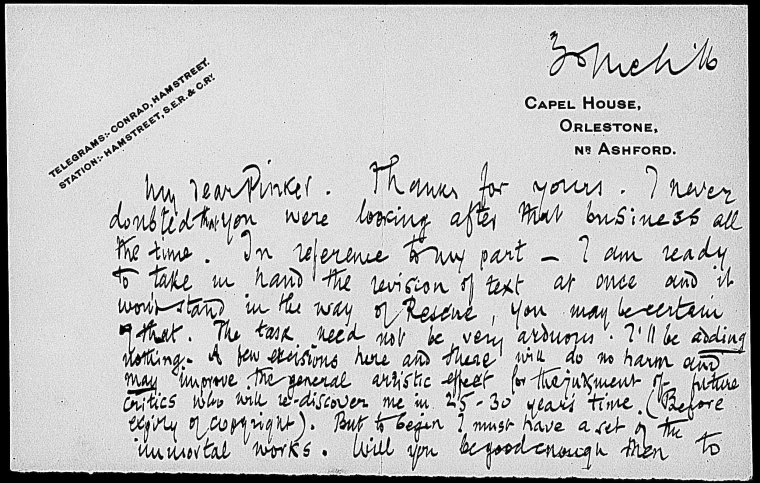 TELEGRAMS:- CONRAD, HAMSTREET.
STATION:- HAMSTREET, S.E.R. & C.RY.
CAPEL HOUSE,
ORLESTONE,
NR ASHFORD.
My dear Pinker. Thanks for yours. I never
doubted that you were looking after that business all
the time. In reference to my part — I am ready
to take in hand the revision of text at once and it
won't stand in the way of Rescue, you may be certain
of that. The task need not be very arduous. I'll be adding
nothing. A few excisions here and there will do no harm and
may improve the general artistic effect for the judgment of future
critics who will re-discover me in 25-30 years time. (Before
expiry of copyright). But to begin I must have a set of the
immortal works. Will you be good enough then to